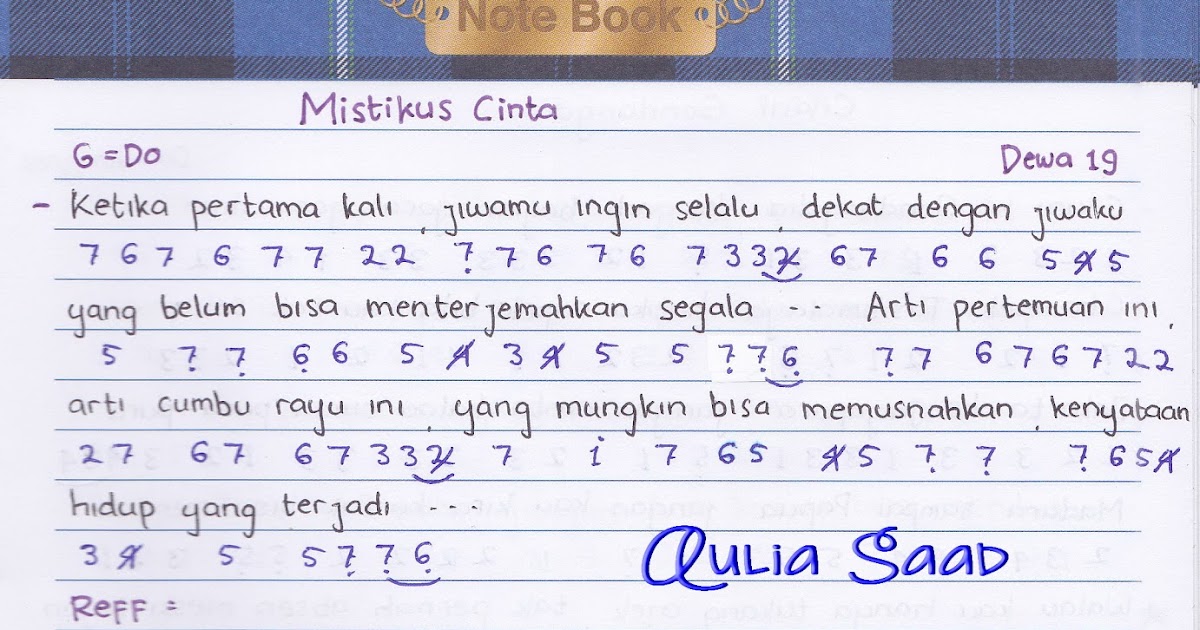 Note Book
Mistikus Cinta
G = Do
Dewa 19
- Ketika pertama kali, jiwamu ingin selalu, dekat dengan jiwaku
7 6 7 6 7 7 2 2 7̣ 7 6 7 6 7 3 3 2̸ 6 7 6 6 5 4̸ 5
yang belum bisa menterjemahkan segala - - Arti pertemuan ini,
5 7̣ 7̣ 6̣ 6 5 4̸ 3 4̸ 5 5 7̣ 7̣ 6̣ 7̣ 7 6 7 6 7 2 2
arti cumbu rayu ini, yang mungkin bisa memusnahkan, kenyataan
2 7 6 7 6 7 3 3 2̸ 7 1̇ 7 6 5 4̸ 5 7̣ 7̣ 7̣ 6 5 4̸
hidup yang terjadi - - - -
3 4̸ 5 5 7̣ 7̣ 6̣
Reff :
Aulia Saad